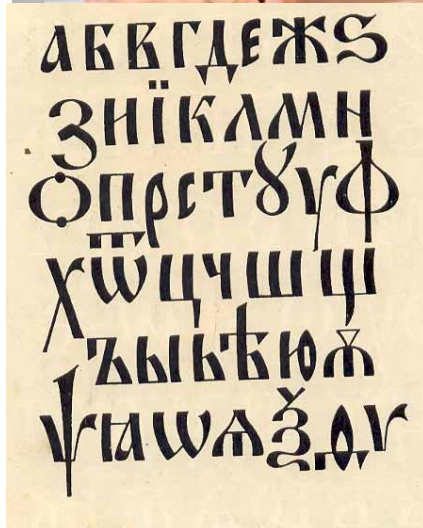 АБВГДЕЖЅ
ЗИЇКЛМН
ОПРСТꙊУФ
ХѾЦЧШЩ
ЪЫЬѢЮѪ
ѰꙖѠѦѮДѴ